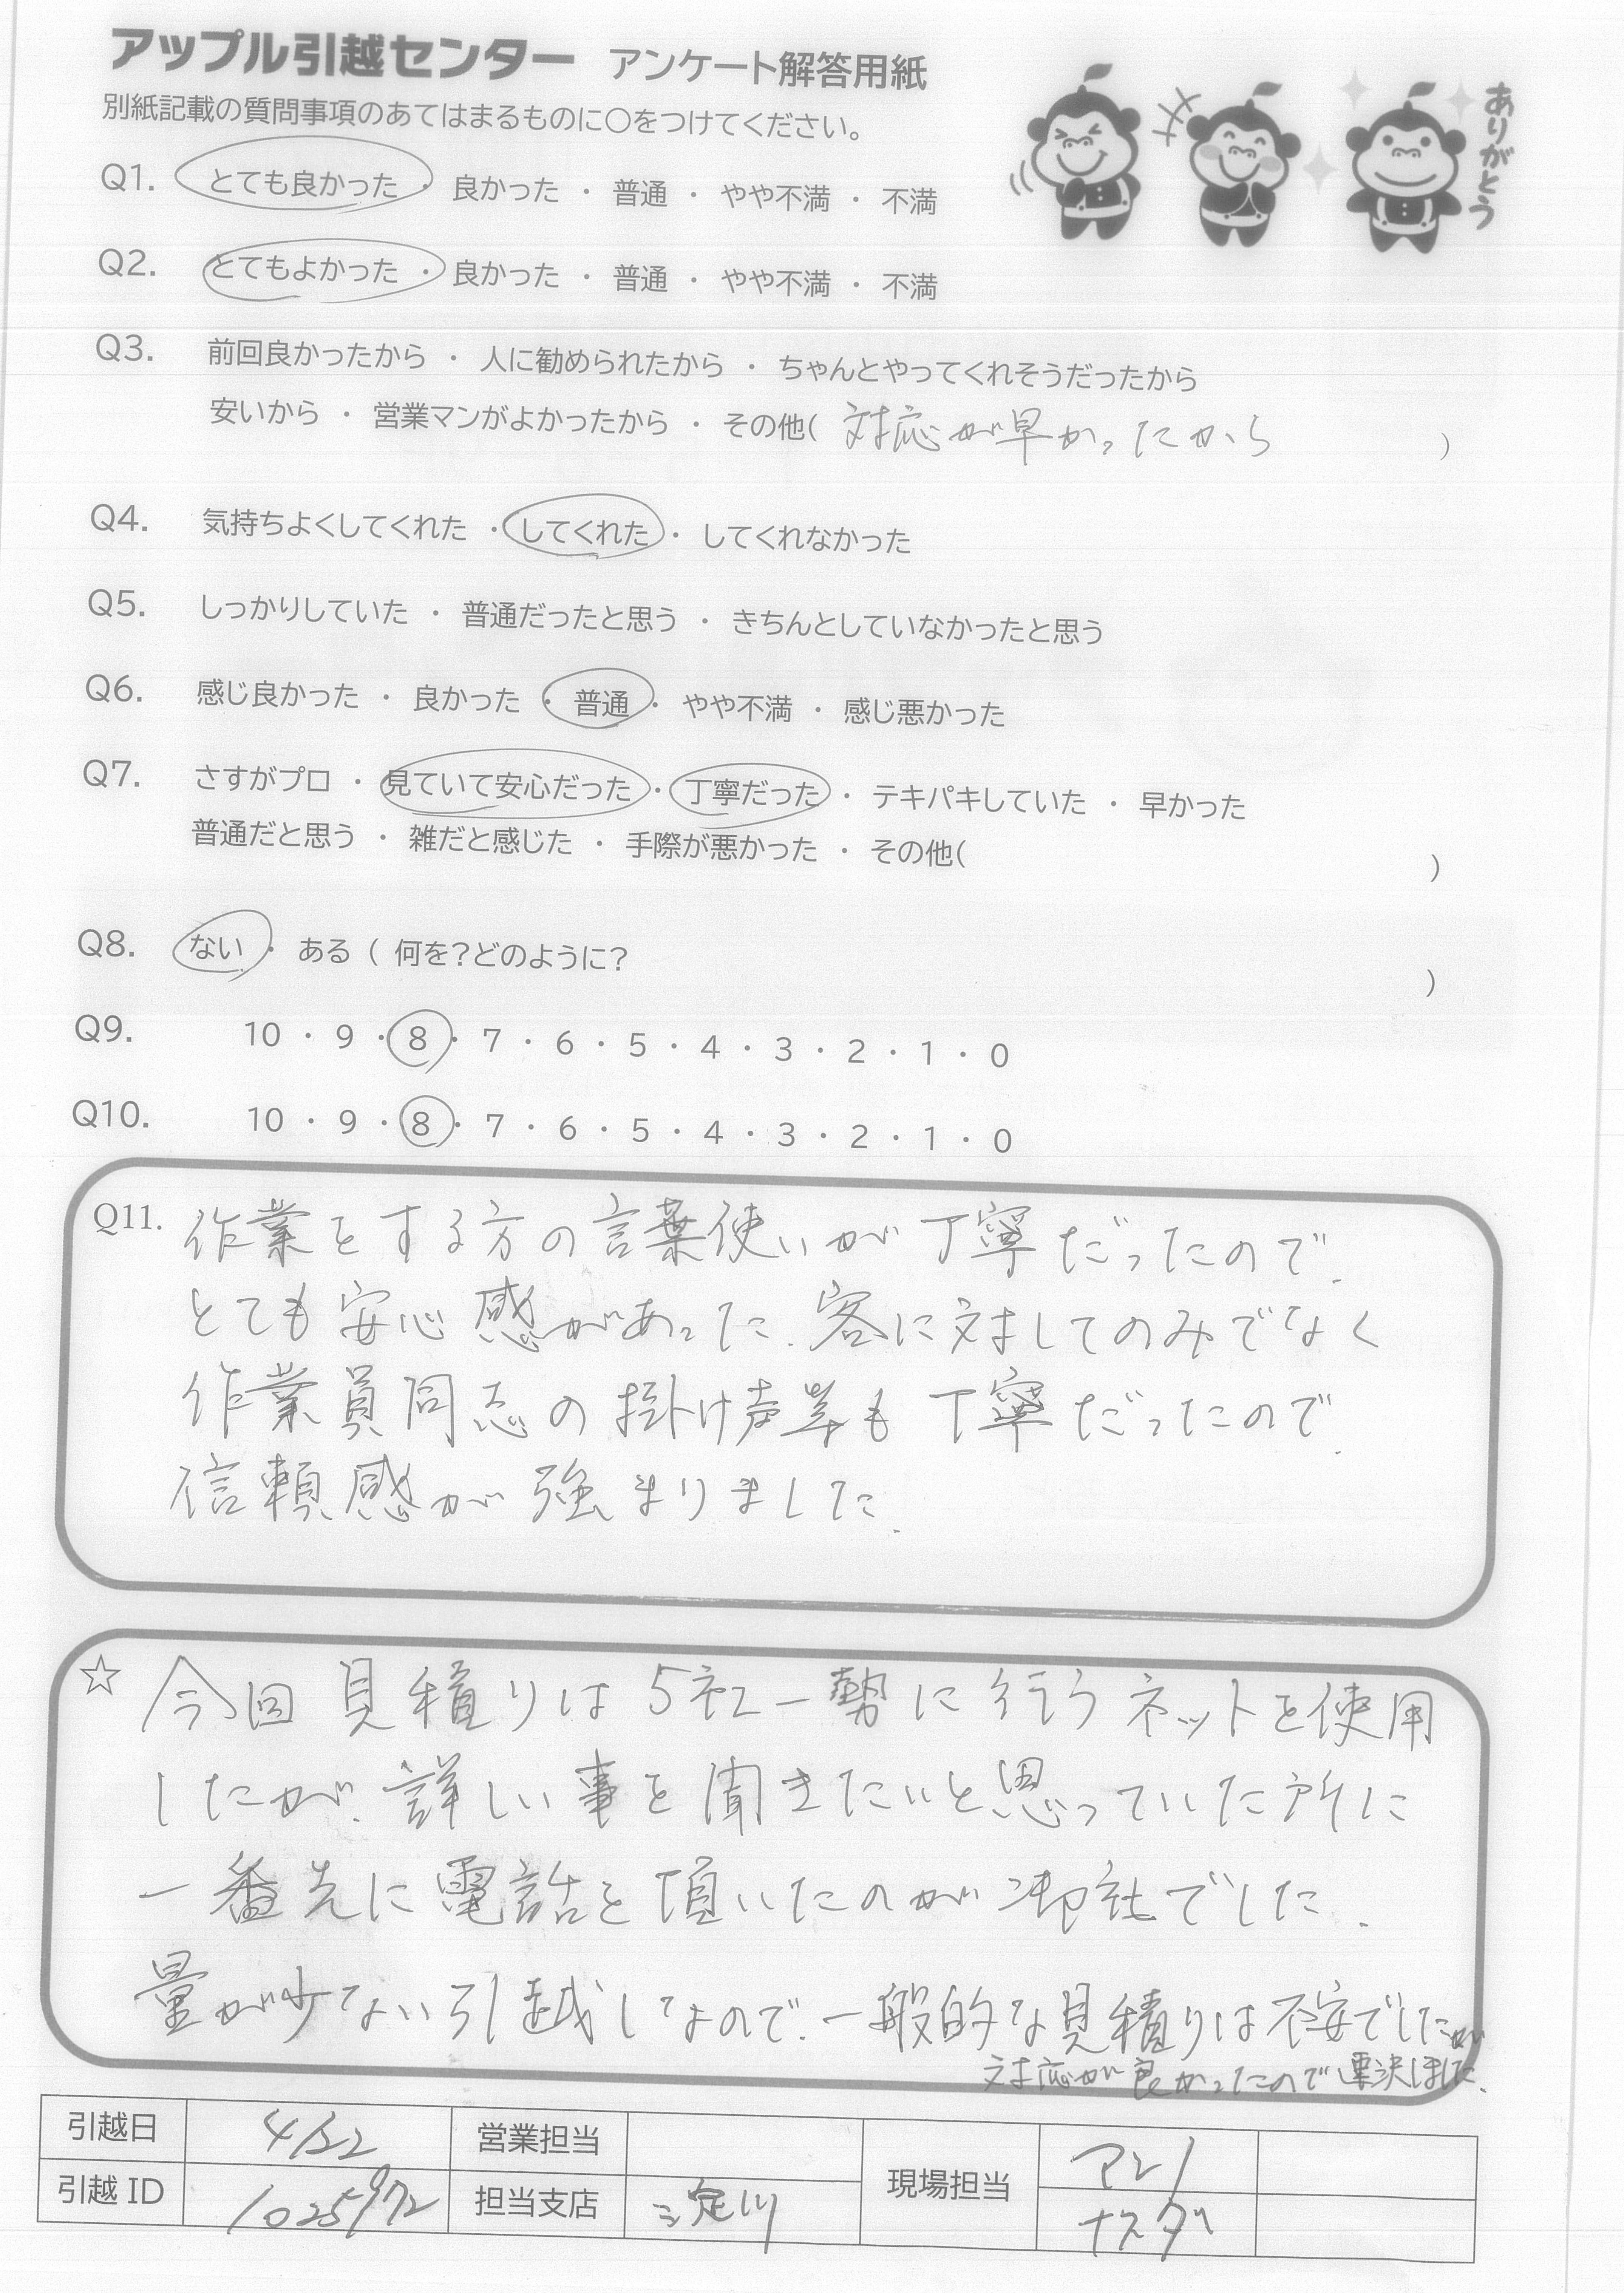 アップル引越センター アンケート解答用紙
別紙記載の質問事項のあてはまるものに○をつけてください。
ありがとう
Q1. とても良かった ・ 良かった ・ 普通 ・ やや不満 ・ 不満
Q2. とてもよかった ・ 良かった ・ 普通 ・ やや不満 ・ 不満
Q3. 前回良かったから ・ 人に勧められたから ・ ちゃんとやってくれそうだったから
安いから ・ 営業マンがよかったから ・ その他( 対応が早かったから )
Q4. 気持ちよくしてくれた ・ してくれた ・ してくれなかった
Q5. しっかりしていた ・ 普通だったと思う ・ きちんとしていなかったと思う
Q6. 感じ良かった ・ 良かった ・ 普通 ・ やや不満 ・ 感じ悪かった
Q7. さすがプロ ・ 見ていて安心だった ・ 丁寧だった ・ テキパキしていた ・ 早かった
普通だと思う ・ 雑だと感じた ・ 手際が悪かった ・ その他( )
Q8. ない ・ ある ( 何を?どのように? )
Q9. 10 ・ 9 ・ 8 ・ 7 ・ 6 ・ 5 ・ 4 ・ 3 ・ 2 ・ 1 ・ 0
Q10. 10 ・ 9 ・ 8 ・ 7 ・ 6 ・ 5 ・ 4 ・ 3 ・ 2 ・ 1 ・ 0
Q11. 作業をする方の言葉使いが丁寧だったので、
とても安心感があった。客に対してのみでなく
作業員同志の掛け声等も丁寧だったので、
信頼感が強まりました。
☆ 今回見積りは5社一勢に行うネットを使用
したが、詳しい事を聞きたいと思っていた所に
一番先に電話を頂いたのが御社でした。
量が少ない引越しなので、一般的な見積りは不安でしたが
対応が良かったので即決しました。
引越日 4/22 営業担当 現場担当
引越 ID 1025972 担当支店